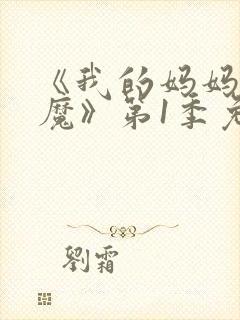 《我的妈妈
魔》第1季
劉霜